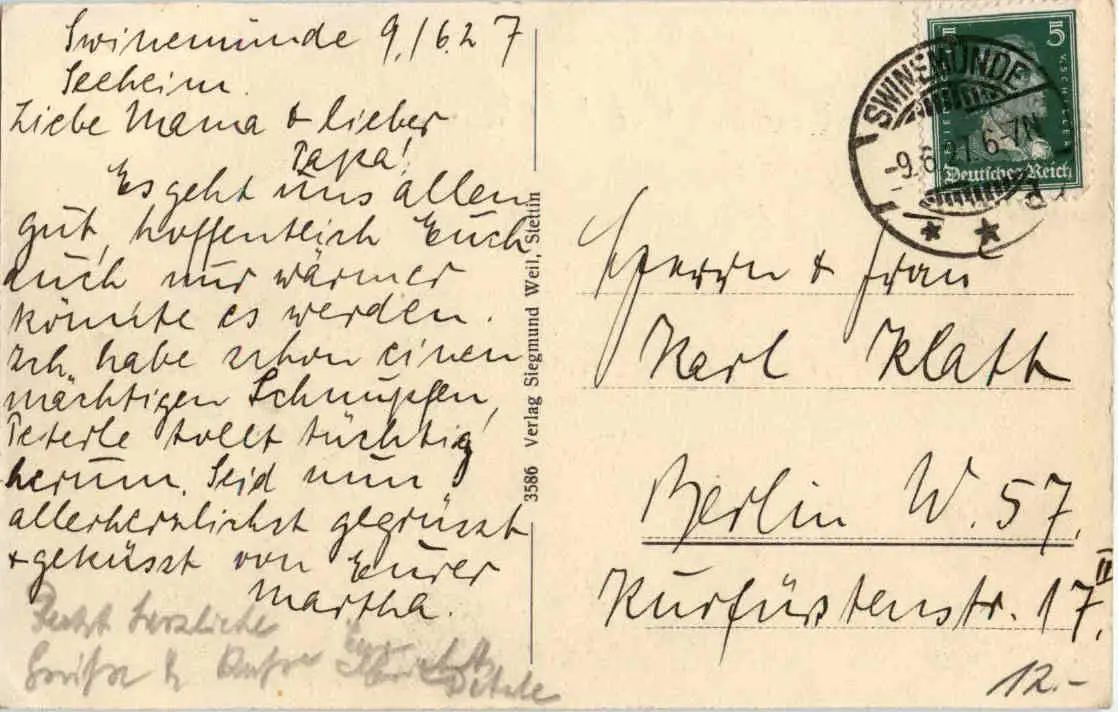 Swinemünde 9./6.27
Seeheim.
Liebe Mama & lieber
Papa!
Es geht uns allen
gut, hoffentlich Euch
auch nur wärmer
könnte es werden.
Ich habe schon einen
mächtigen Schnupfen,
Peterle tollt tüchtig
herum. Seid nun
allerherzlichst gegrüsst
+ geküsst von Eurer
Martha.
herzliche
Grüße
3586 Verlag Siegmund Weil, Stettin
5
Deutsches Reich
SWINEMÜNDE
-9.6.27.6-7N
Herrn & Frau
Karl Klatt
Berlin W. 57.
Kurfürstenstr. 17. II
12.-